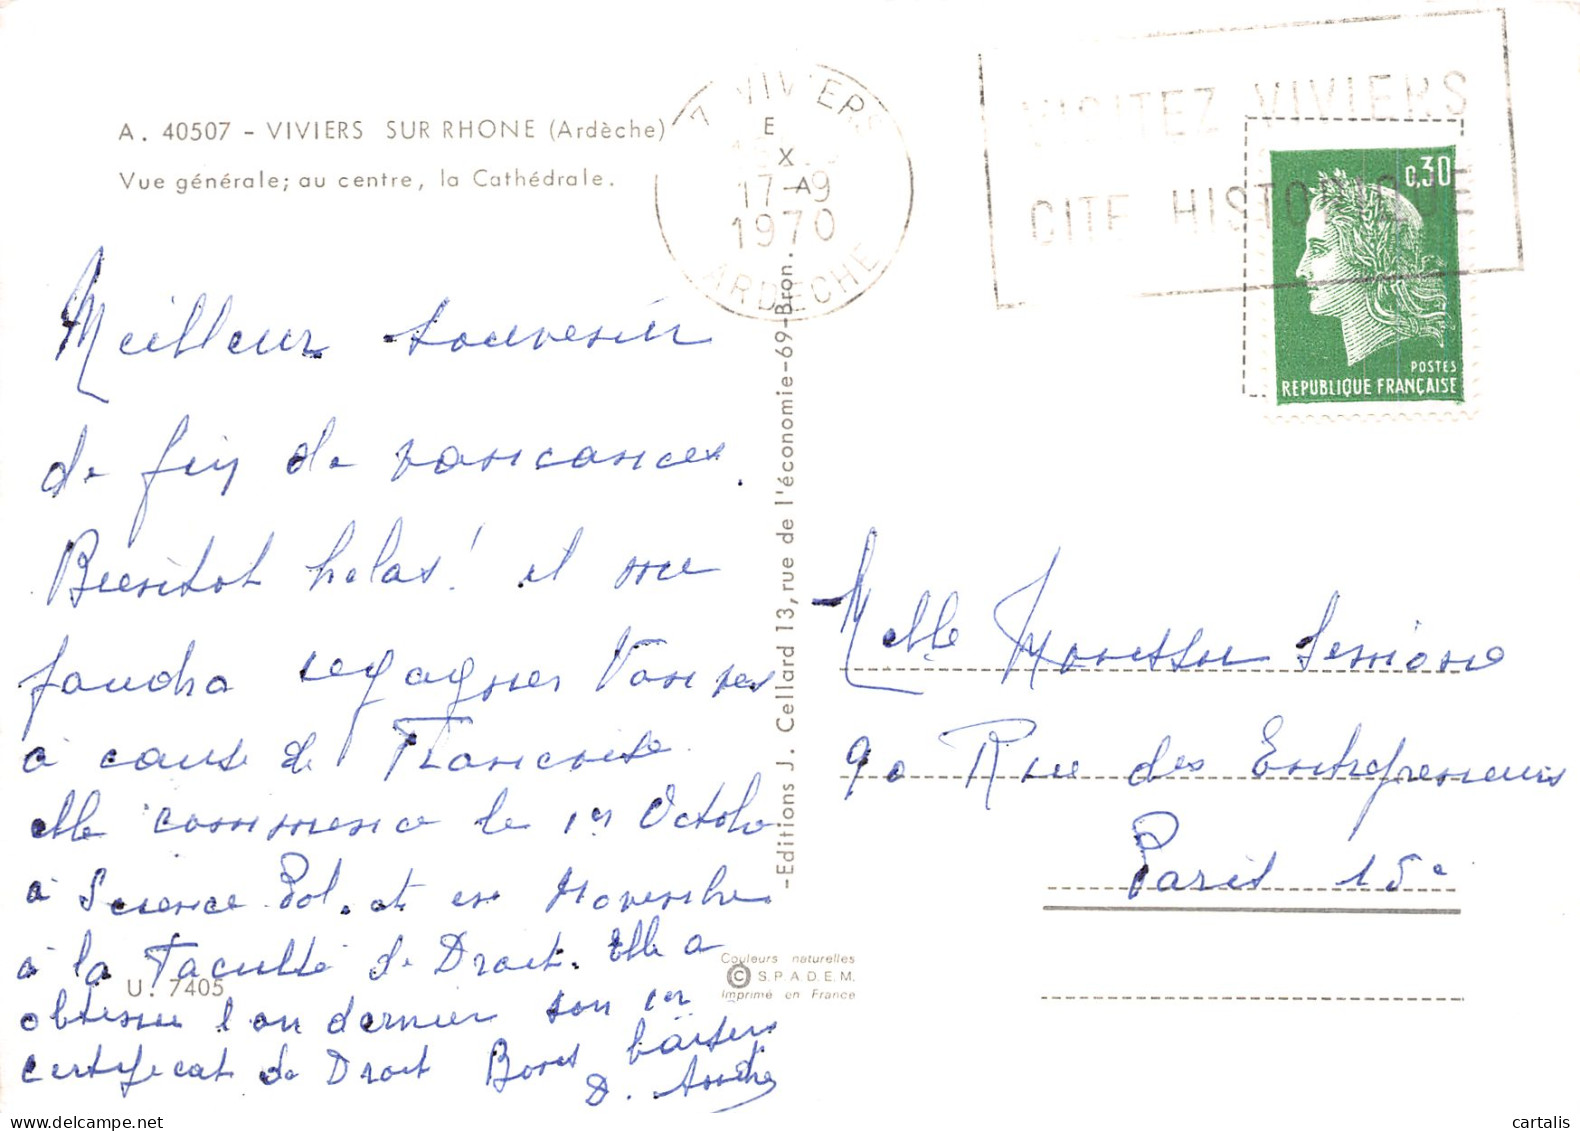 A. 40507 - VIVIERS SUR RHONE (Ardèche)
Vue générale; au centre, la Cathédrale.
VIVIERS
17-9
1970
ARDECHE
EXA
VISITEZ VIVIERS
CITE HISTORIQUE
0,30
POSTES
REPUBLIQUE FRANÇAISE
Meilleur souvenir
de fin de vancances.
Bientot helas! il me
faudra regagner Vanves
à cause de Francoise
elle commence le 1er Octobre
à Science Pol. et en Novembre
à la Faculté de Droit. Elle a
obtenu l'an dernier son 1er
certificat de Droit Bons baisers
D. André
U. 7405
-Editions J. Cellard 13, rue de l'économie-69-Bron.
Couleurs naturelles
© S.P.A.D.E.M.
Imprimé en France
Melle
90 Rue des Entrepreneurs
Paris 15e
cartalis